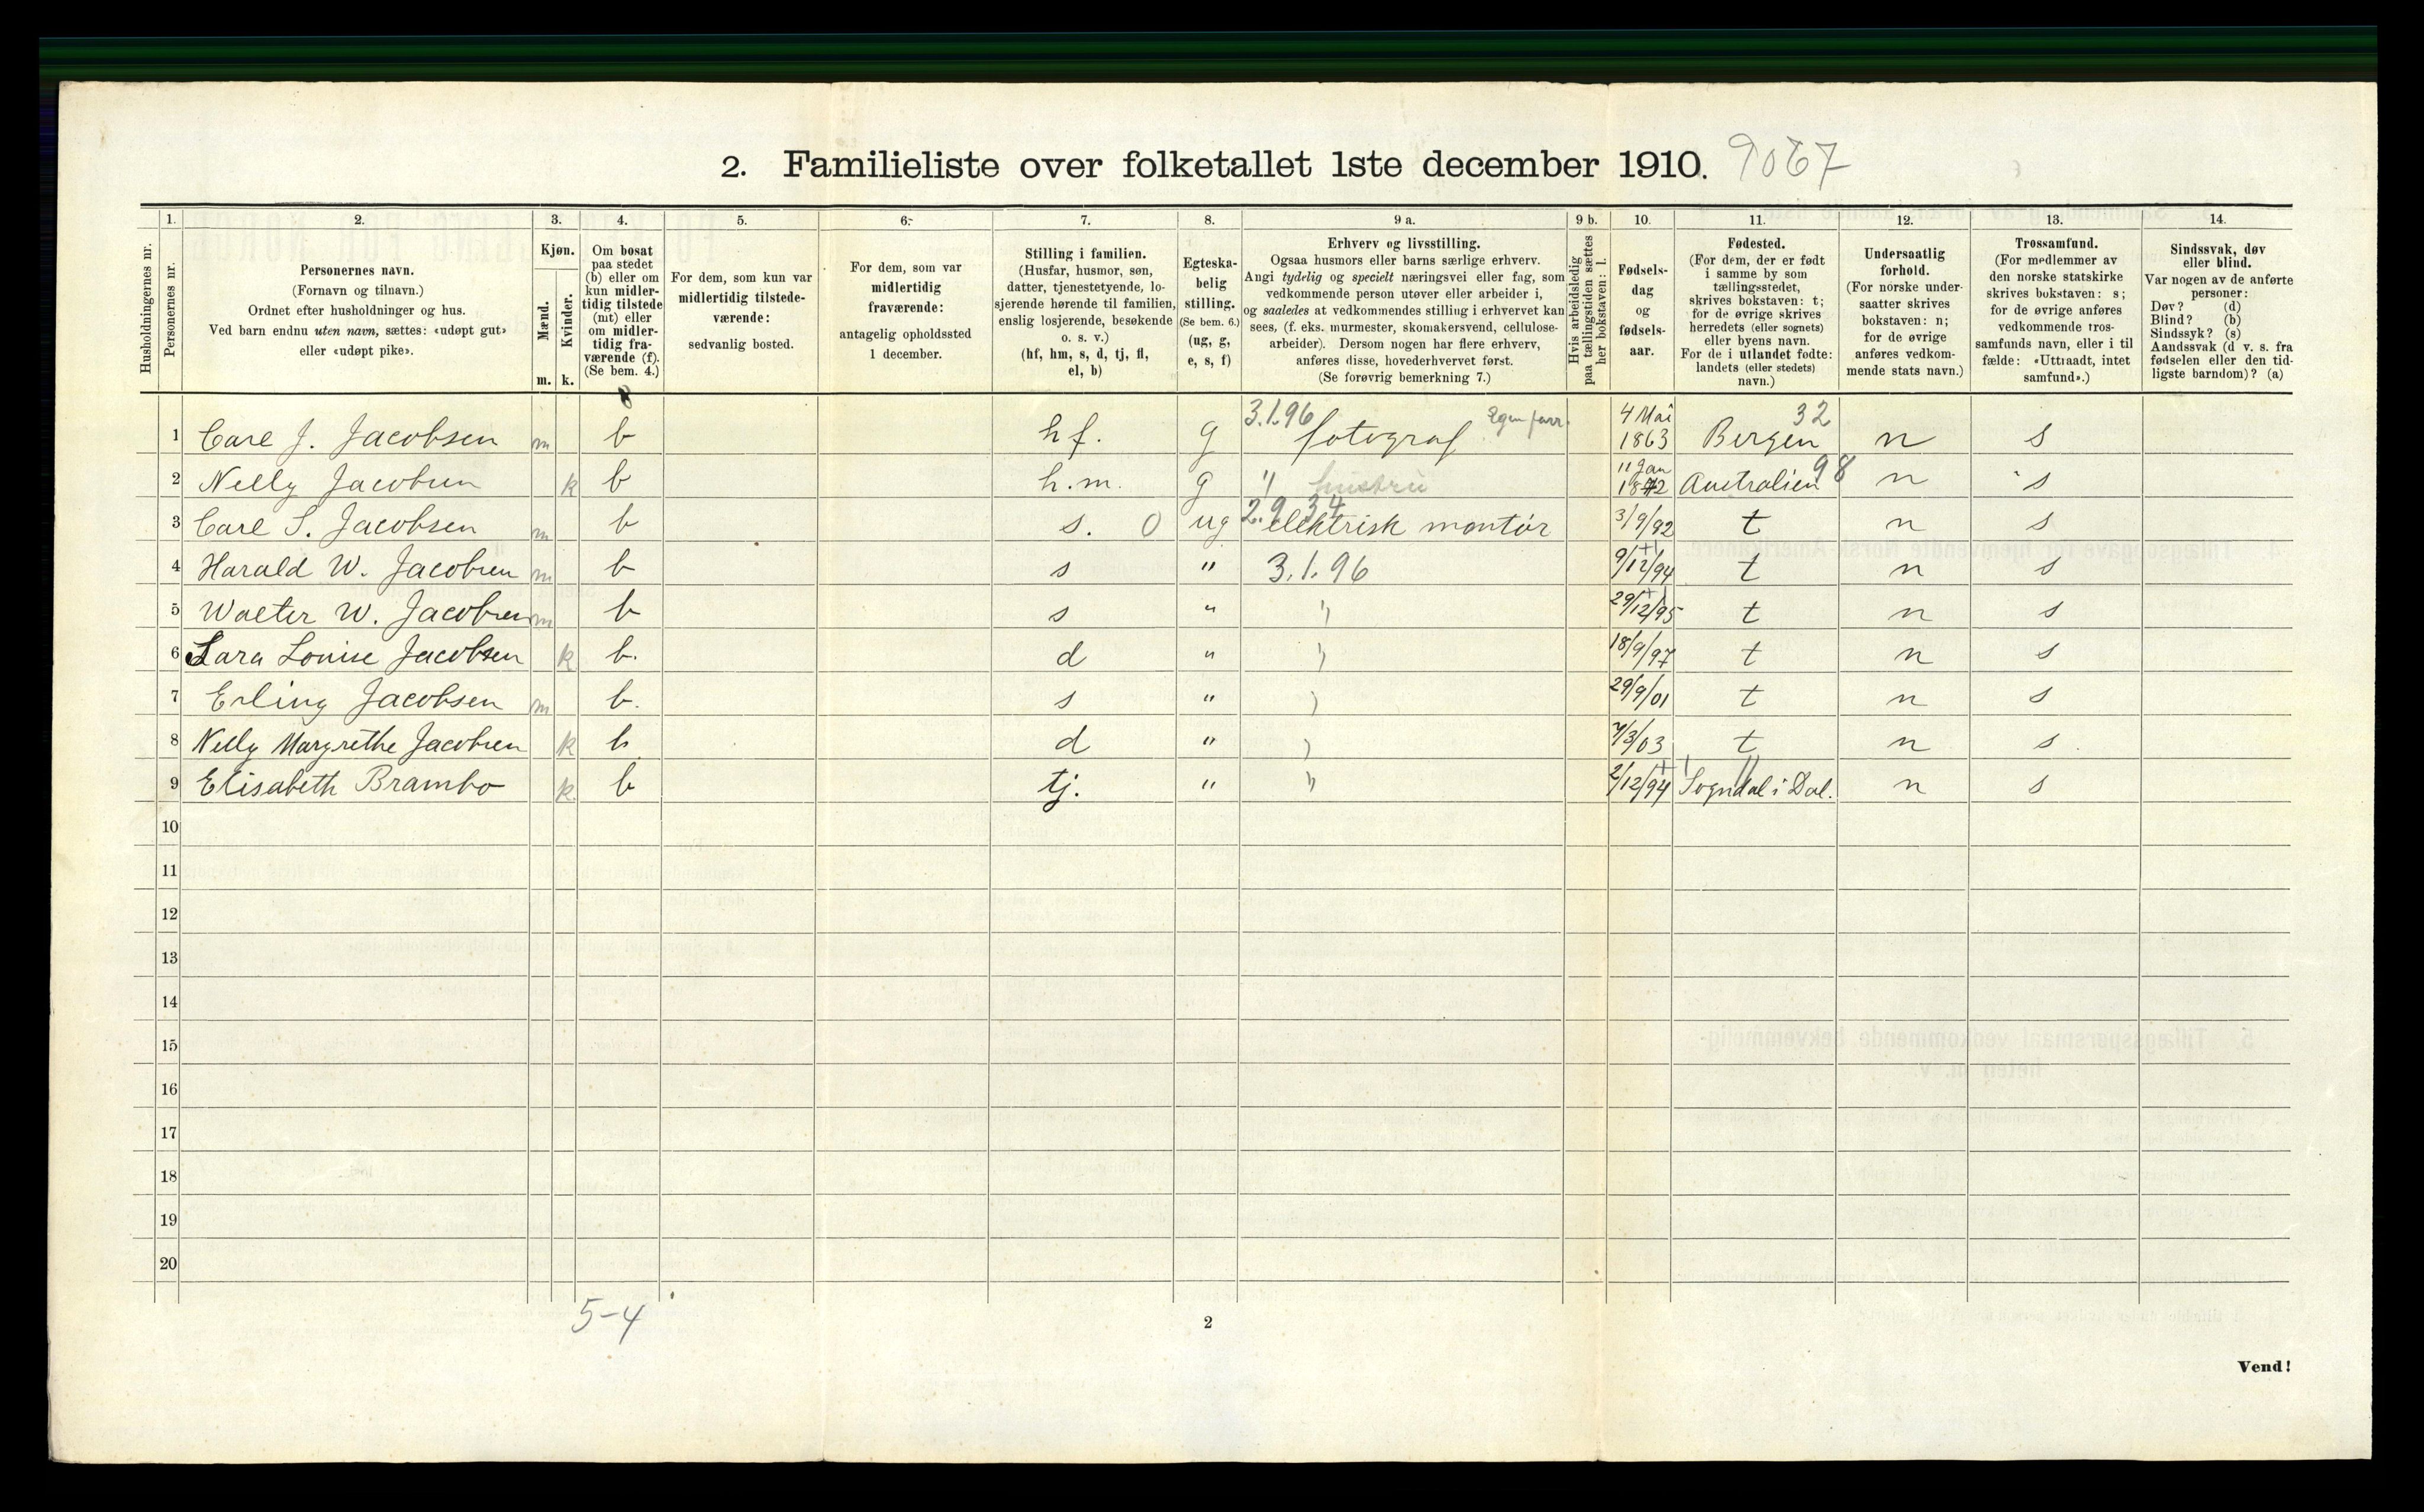 2. Familieliste over folketallet 1ste december 1910. 9067
1. 2. 3. 4. 5. 6. 7. 8. 9 a. 9 b. 10. 11. 12. 13. 14.
Husholdningernes nr.
Personernes nr.
Personernes navn.
(Fornavn og tilnavn.)
Ordnet efter husholdninger og hus.
Ved barn endnu uten navn, sættes: «udøpt gut»
eller «udøpt pike».
Kjøn.
Mænd.
Kvinder.
m. k.
Om bosat
paa stedet
(b) eller om
kun midler-
tidig tilstede
(mt) eller
om midler-
tidig fra-
værende (f).
(Se bem. 4.)
For dem, som kun var
midlertidig tilstede-
værende:
sedvanlig bosted.
For dem, som var
midlertidig
fraværende:
antagelig opholdssted
1 december.
Stilling i familien.
(Husfar, husmor, søn,
datter, tjenestetyende, lo-
sjerende hørende til familien,
enslig losjerende, besøkende
o. s. v.)
(hf, hm, s, d, tj, fl,
el, b)
Egteska-
belig
stilling.
(Se bem. 6.)
(ug, g,
e, s, f)
Erhverv og livsstilling.
Ogsaa husmors eller barns særlige erhverv.
Angi tydelig og specielt næringsvei eller fag, som
vedkommende person utøver eller arbeider i,
og saaledes at vedkommendes stilling i erhvervet kan
sees, (f. eks. murmester, skomakersvend, cellulose-
arbeider). Dersom nogen har flere erhverv,
anføres disse, hovederhvervet først.
(Se forøvrig bemerkning 7.)
Hvis arbeidsledig
paa tællingstiden sættes
her bokstaven: l.
Fødsels-
dag
og
fødsels-
aar.
Fødested.
(For dem, der er født
i samme by som
tællingsstedet,
skrives bokstaven: t;
for de øvrige skrives
herredets (eller sognets)
eller byens navn.
For de i utlandet fødte:
landets (eller stedets)
navn.)
Undersaatlig
forhold.
(For norske under-
saatter skrives
bokstaven: n;
for de øvrige
anføres vedkom-
mende stats navn.)
Trossamfund.
(For medlemmer av
den norske statskirke
skrives bokstaven: s;
for de øvrige anføres
vedkommende tros-
samfunds navn, eller i til
fælde: «Uttraadt, intet
samfund».)
Sindssvak, døv
eller blind.
Var nogen av de anførte
personer:
Døv? (d)
Blind? (b)
Sindssyk? (s)
Aandssvak (d v. s. fra
fødselen eller den tid-
ligste barndom)? (a)
1 Carl J. Jacobsen m b hf. g 3.1.96 fotograf 4 Mai 1863 Bergen 32 n s
2 Nelly Jacobsen k b h.m. g " hustru 11 Jan 1872 Australien 98 n s
3 Carl S. Jacobsen m b s. 0 ug 2.9.34 elektrisk montør 3/9/92 t n s
4 Harald W. Jacobsen m b s " 3.1.96 9/12/94 t n s
5 Walter W. Jacobsen m b s " " 29/12/95 t n s
6 Lara Louise Jacobsen k b. d " " 18/9/97 t n s
7 Erling Jacobsen m b. s " " 29/9/01 t n s
8 Nelly Margrethe Jacobsen k b d " " 7/3/03 t n s
9 Elisabeth Brambo k b tj. " " 2/12/94 Sogndal i Dal. n s
10
11
12
13
14
15
16
17
18
19
20
5-4
2
Vend!